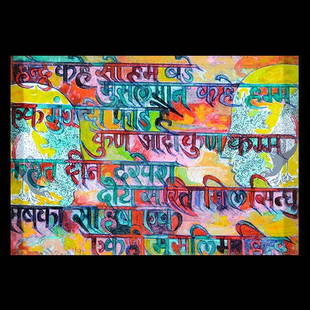 हिन्दु कहे सो हम बडे
मुसलमान कहे हम्म
एक मुंग दो फाड है
कुण जादा कुण कम्म
कहत दीन दरवेश
दोय सरिता मिल सिन्धु
सबका साहब एक
एकही मुसलिम हिन्दु